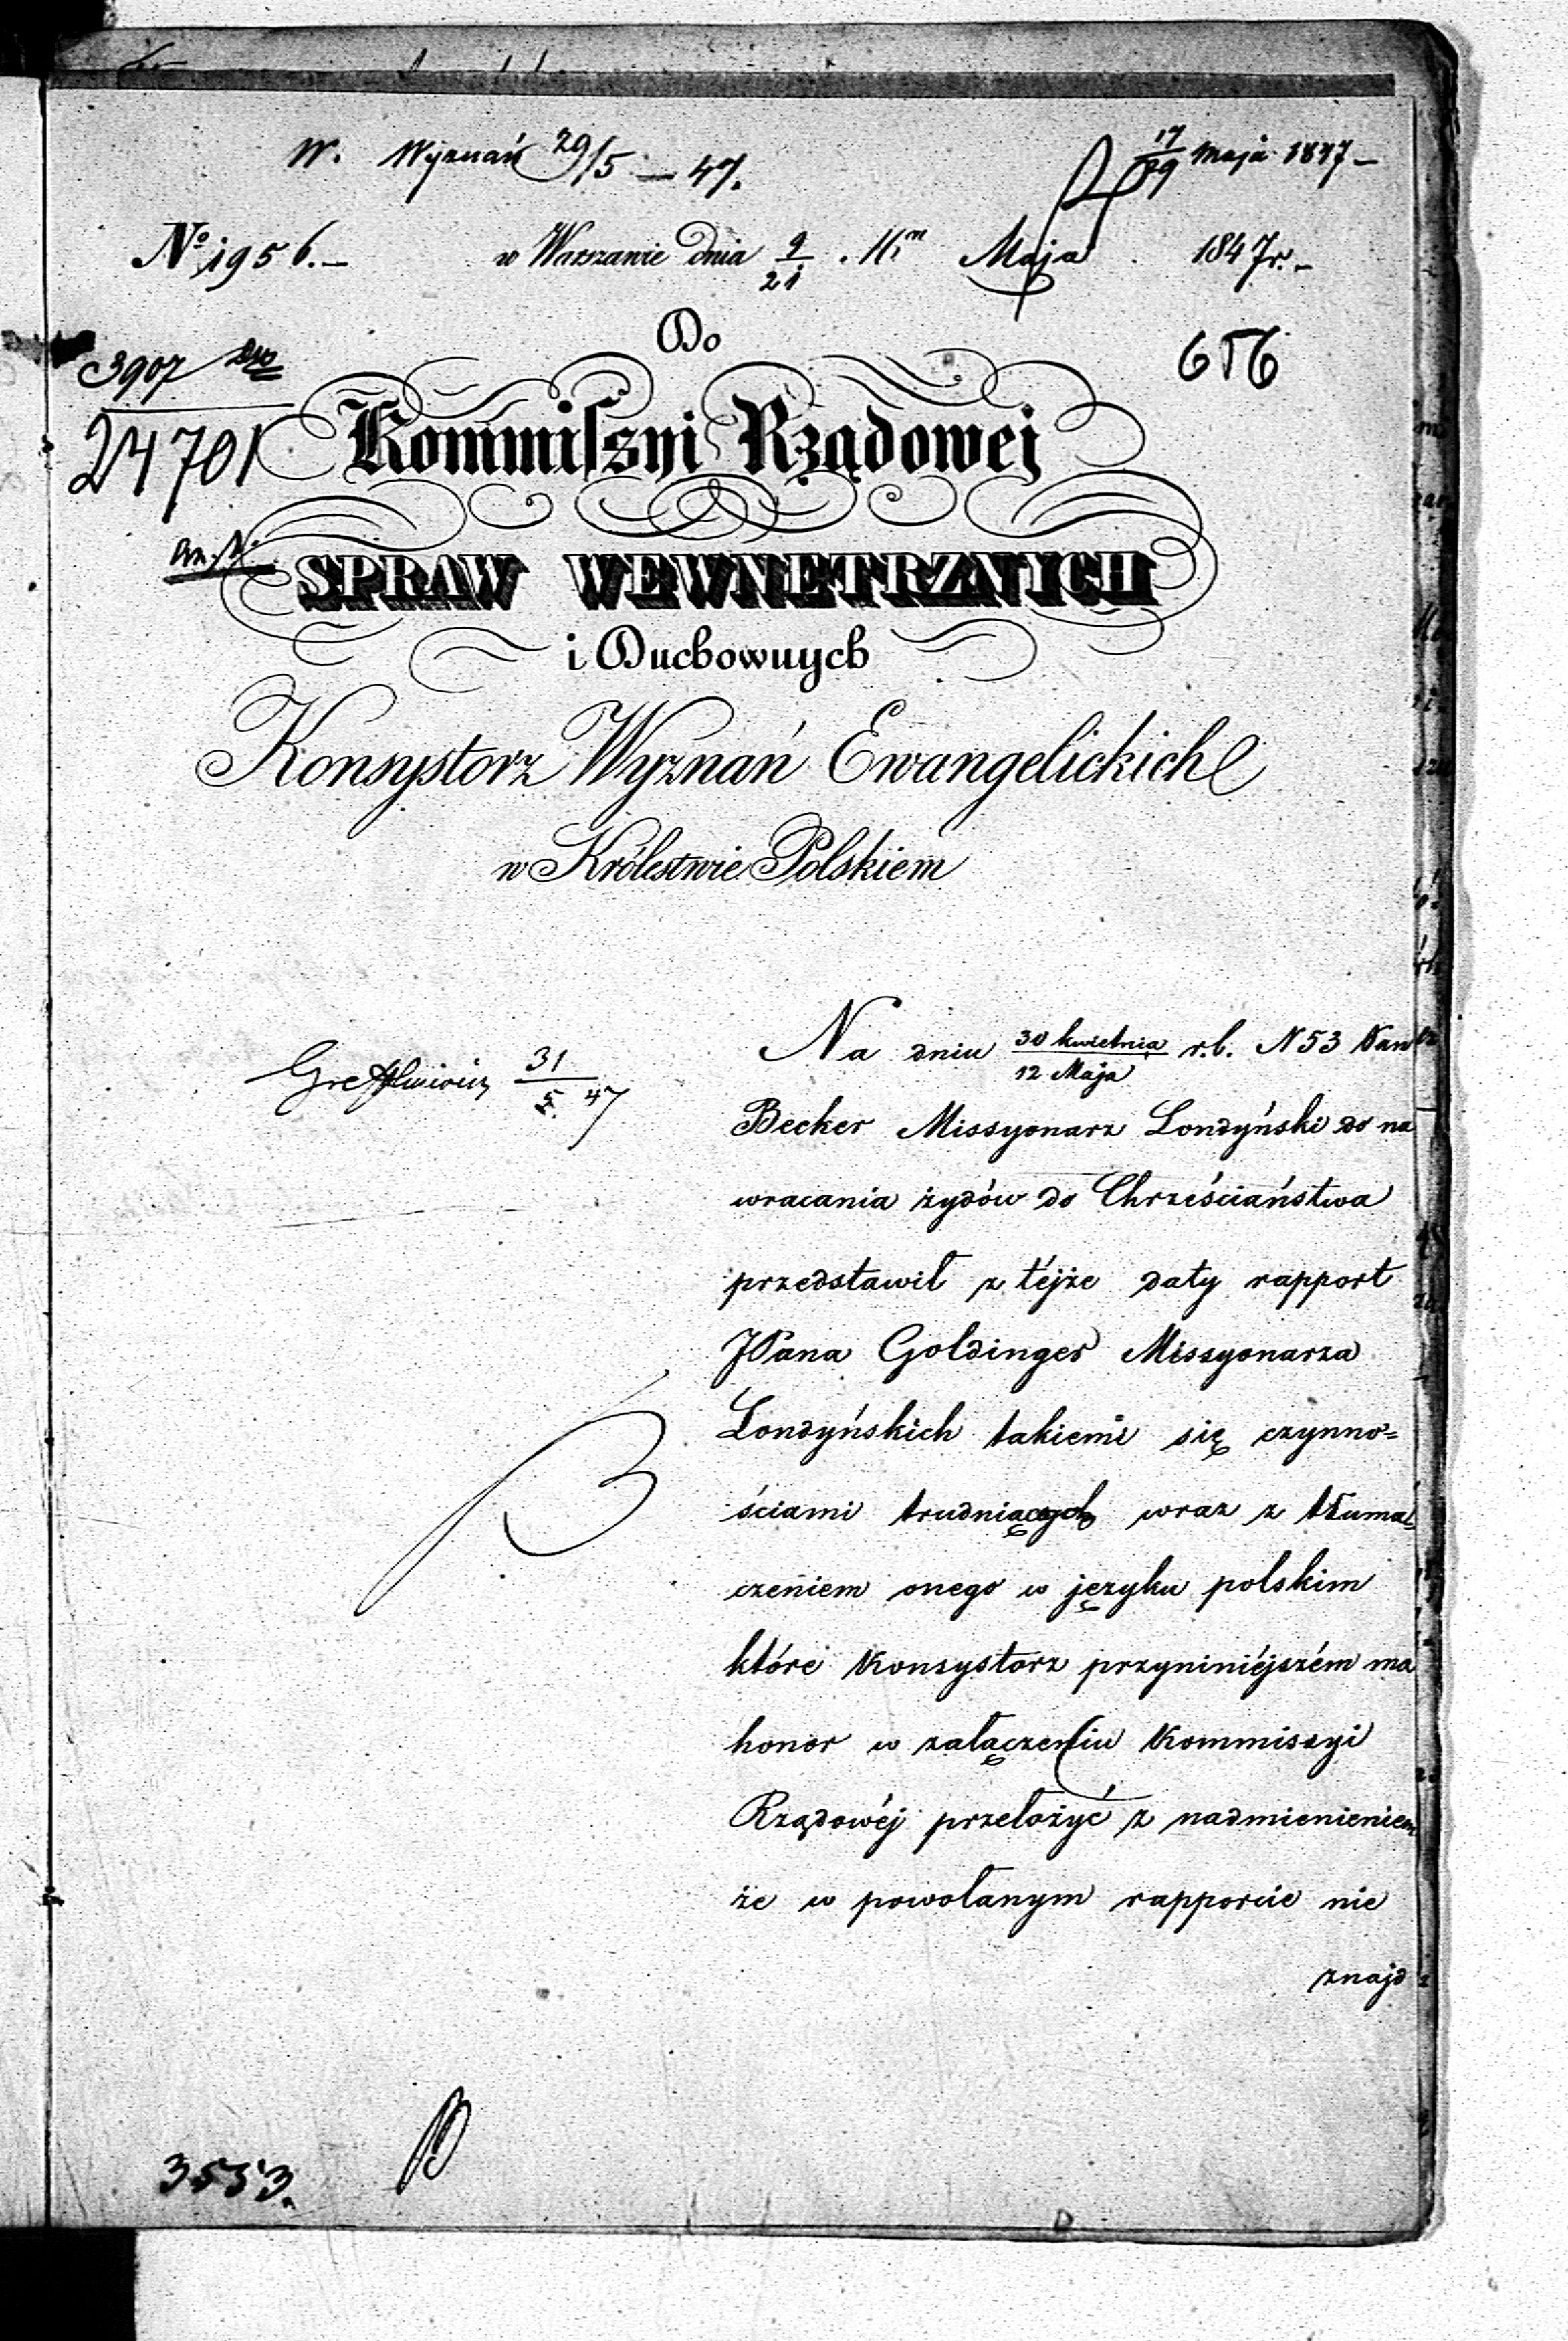 W. Wyznań 29/5 — 47.
17/29 Maja 1847 —
No 1956. —
w Warszawie dnia 9/21 Maja 1847 r. —
Do
656
3907
24701
Kommiſsyi Rządowej
SPRAW WEWNETRZNYCH
i Duchownych
Konsystorz Wyznań Ewangelickich
w Królestwie Polskiem
Na dniu 30 kwietnia/12 Maja r.b. N 53 Pan
31/5 47
Becker Missyonarz Londyński do na
wracania żydów do Chrześciaństwa
przedstawił z téjże daty rapport
JPana Goldinger Missyonarza
Londyńskich takiemi się czynno=
ściami trudniących wraz z tłuma=
czeniem onego w języku polskim
które Konsystorz przyniniéjszém ma
honor w załączeniu Kommissyi
Rządowéj przełożyć z nadmienieniem
że w powołanym rapporcie nie
znajd
3553.